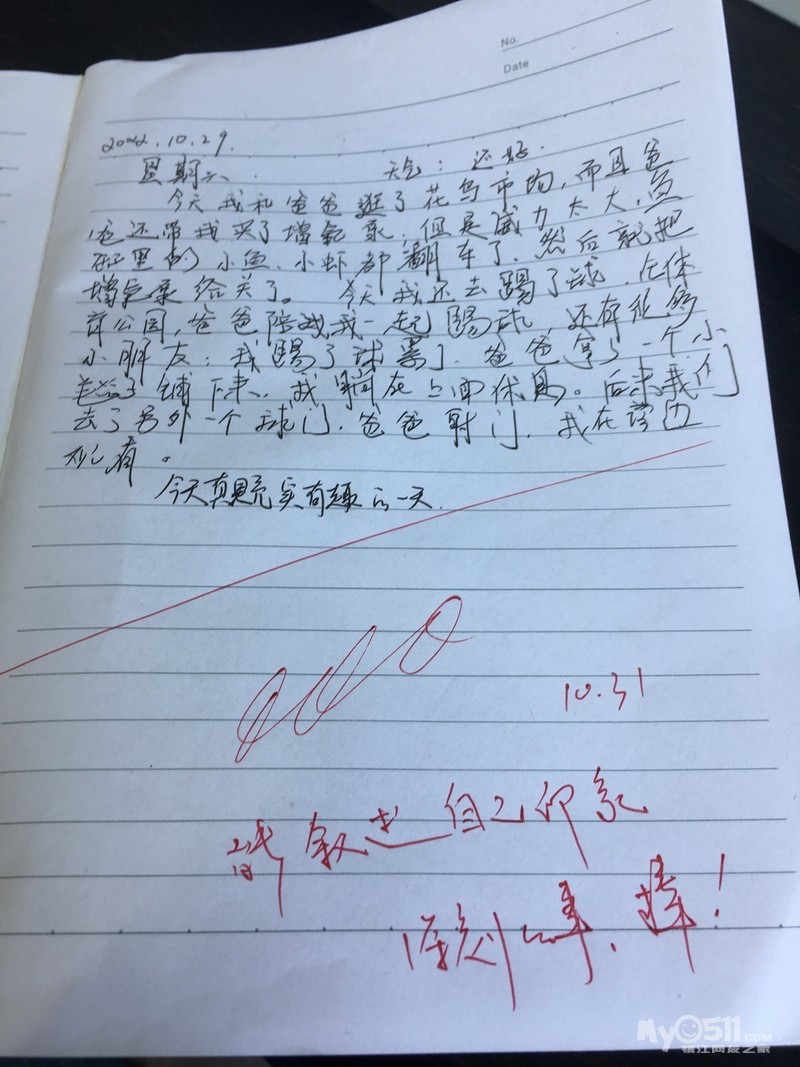 No.
Date
2022.10.29.
星期六. 天气：还好.
今天我和爸爸逛了花鸟市场，而且爸
爸还带我买了增氧泵.但是威力太大，鱼
缸里的小鱼、小虾都翻车了.然后就把
增氧泵给关了。今天我还去踢了球.在体
育公园，爸爸陪我一起踢球，还有很多
小朋友.我踢了球累了.爸爸拿了一个小
铺下来、我躺在上面休息。后来我们
去了另外一个球门.爸爸射门.我在旁边
观看。
今天真是充实有趣的一天.
10.31
能叙述自己印象
深刻的事，棒！
My0511.COM
镇江网友之家